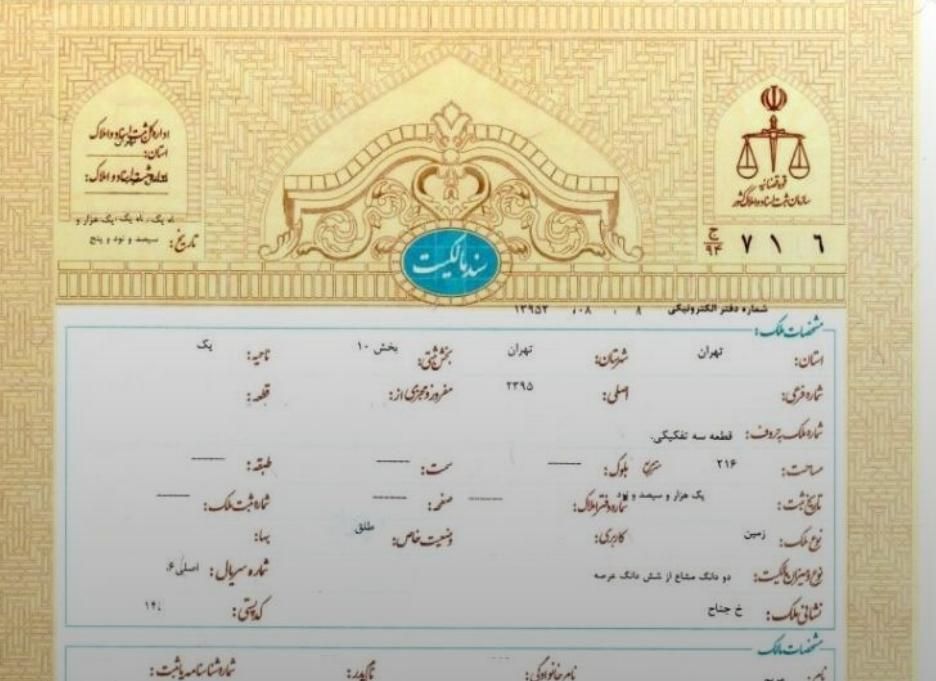 اداره کل ثبت اسناد و املاک
استان:
اداره ثبت اسناد و املاک:
تاریخ: یک هزار و سیصد و نود و پنج
قوه قضائیه
سازمان ثبت اسناد و املاک کشور
ج ۹۴ ۷۱۶
سند مالکیت
شماره دفتر الکترونیکی
مشخصات ملک:
استان: تهران شهرستان: تهران بخش ثبتی: بخش ۱۰ ناحیه: یک
شماره فرعی: اصلی: ۲۳۹۵ مفروز و مجزی از: قطعه:
شماره ملک به حروف: قطعه سه تفکیکی.
مساحت: ۲۱۶ متر مربع بلوک: ------ سمت: ------ طبقه: ------
تاریخ ثبت: یک هزار و سیصد و نود شماره دفتر املاک: ------ صفحه: ------ شماره ثبت ملک: ------
نوع ملک: زمین کاربری: وضعیت خاص: طلق بهاء:
نوع و میزان مالکیت: دو دانگ مشاع از شش دانگ عرصه شماره سریال:
نشانی ملک: خ جناح کد پستی:
مشخصات مالک
نام: نام خانوادگی: نام پدر: شماره شناسنامه یا ثبت: